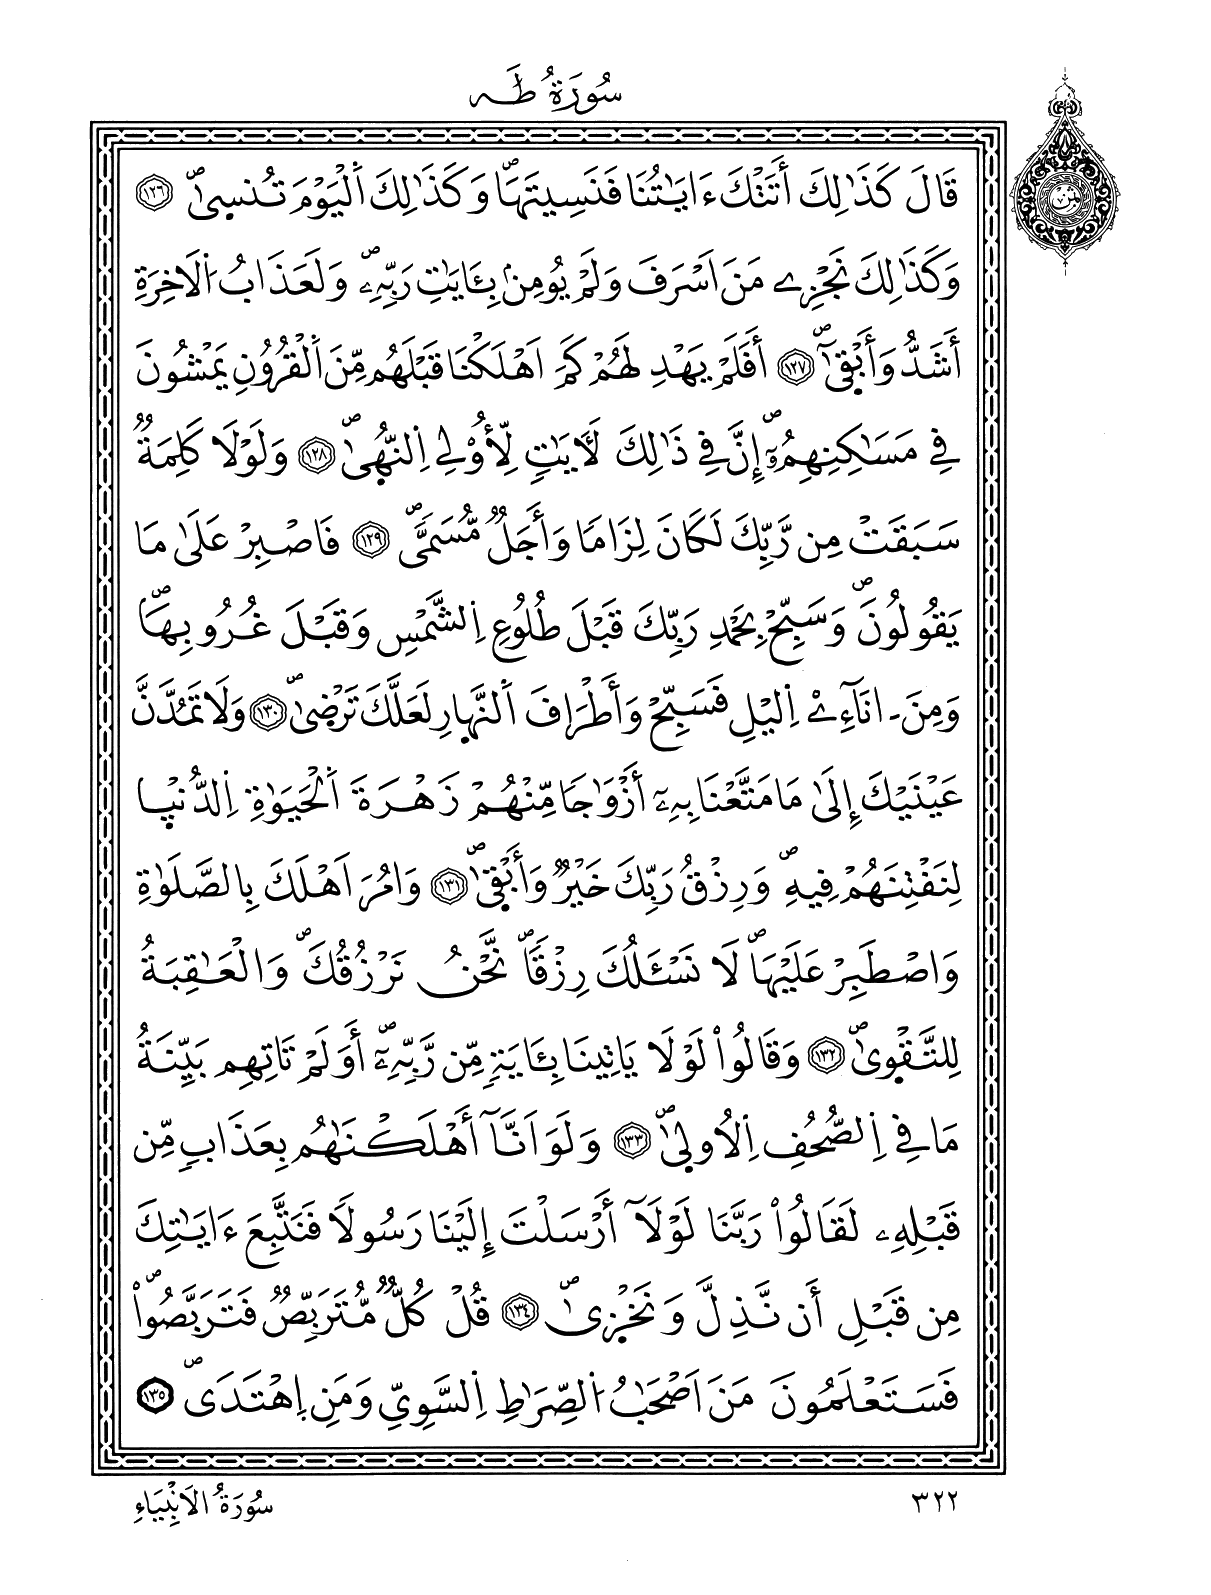 سُورَةُ طَهَ
ثمن
قَالَ كَذَٰلِكَ أَتَتْكَ ءَايَٰتُنَا فَنَسِيتَهَاۖ وَكَذَٰلِكَ اَ۬لْيَوْمَ تُنس۪يٰۖ ١٢٦
وَكَذَٰلِكَ نَجْزِے مَنَ اَسْرَفَ وَلَمْ يُومِنۢ بِـَٔايَٰتِ رَبِّهِۦۖ وَلَعَذَابُ اُ۬لَاخِرَةِ
أَشَدُّ وَأَبْق۪يٰٓۖ ١٢٧ أَفَلَمْ يَهْدِ لَهُمْ كَمَ اَهْلَكْنَا قَبْلَهُم مِّنَ اَ۬لْقُرُونِ يَمْشُونَ
فِے مَسَٰكِنِهِمُۥٓۖ إِنَّ فِے ذَٰلِكَ لَأٓيَٰتٖ لِّأُوْلِے اِ۬لنُّه۪يٰۖ ١٢٨ وَلَوْلَا كَلِمَةٞ
سَبَقَتْ مِن رَّبِّكَ لَكَانَ لِزَاماٗ وَأَجَلٞ مُّسَمّيٗۖ ١٢٩ فَاصْبِرْ عَلَيٰ مَا
يَقُولُونَۖ وَسَبِّحْ بِحَمْدِ رَبِّكَ قَبْلَ طُلُوعِ اِ۬لشَّمْسِ وَقَبْلَ غُرُوبِهَاۖ
وَمِنَ اٰنَآءِےْ اِ۬ليْلِ فَسَبِّحْ وَأَطْرَافَ اَ۬لنَّه۪ارِ لَعَلَّكَ تَرْض۪يٰۖ ١٣٠ وَلَا تَمُدَّنَّ
عَيْنَيْكَ إِلَيٰ مَا مَتَّعْنَا بِهِۦٓ أَزْوَٰجاٗ مِّنْهُمْ زَهْرَةَ اَ۬لْحَيَوٰةِ اِ۬لدُّنْي۪ا
لِنَفْتِنَهُمْ فِيهِۖ وَرِزْقُ رَبِّكَ خَيْرٞ وَأَبْق۪يٰۖ ١٣١ وَامُرَ اَهْلَكَ بِالصَّلَوٰةِ
وَاصْطَبِرْ عَلَيْهَاۖ لَا نَسْـَٔلُكَ رِزْقاٗۖ نَّحْنُ نَرْزُقُكَۖ وَالْعَٰقِبَةُ
لِلتَّقْو۪يٰۖ ١٣٢ وَقَالُواْ لَوْلَا يَاتِينَا بِـَٔايَةٖ مِّن رَّبِّهِۦٓۖ أَوَلَمْ تَاتِهِم بَيِّنَةُ
مَا فِے اِ۬لصُّحُفِ اِ۬لُاول۪يٰۖ ١٣٣ وَلَوَ اَنَّآ أَهْلَكْنَٰهُم بِعَذَابٖ مِّن
قَبْلِهِۦ لَقَالُواْ رَبَّنَا لَوْلَآ أَرْسَلْتَ إِلَيْنَا رَسُولاٗ فَنَتَّبِعَ ءَايَٰتِكَ
مِن قَبْلِ أَن نَّذِلَّ وَنَخْز۪يٰۖ ١٣٤ قُلْ كُلّٞ مُّتَرَبِّصٞ فَتَرَبَّصُواْۖ
فَسَتَعْلَمُونَ مَنَ اَصْحَٰبُ اُ۬لصِّرَٰطِ اِ۬لسَّوِيِّ وَمَنِ اِ۪هْتَد۪يٰۖ ١٣٥
٣٢٢
سُورَةُ الاَنۢبِيَاءِ